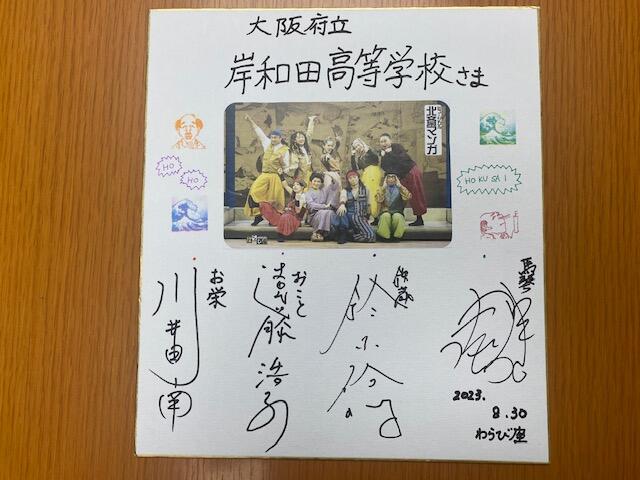 大阪府立
岸和田高等学校さま
北斎マンガ
HO
HO
HOKUSAI
馬琴
おこと
遠藤浩子
お栄
川井田南
2023.
8.30
わらび座